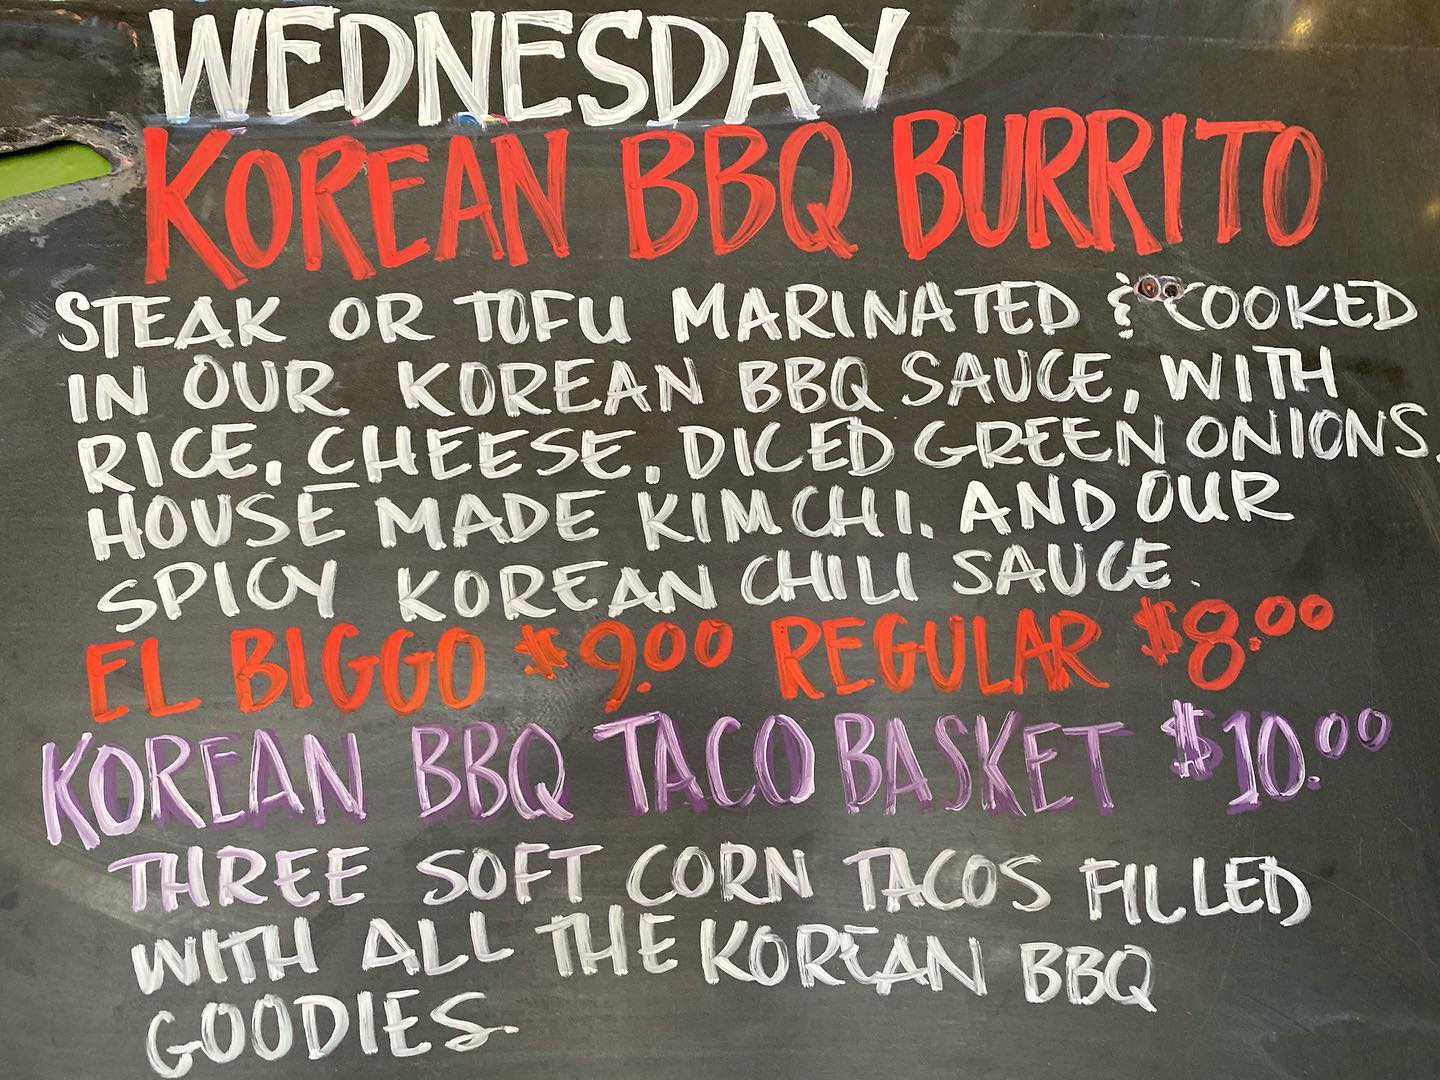 WEDNESDAY
KOREAN BBQ BURRITO
STEAK OR TOFU MARINATED & COOKED
IN OUR KOREAN BBQ SAUCE, WITH
RICE, CHEESE, DICED GREEN ONIONS,
HOUSE MADE KIMCHI. AND OUR
SPICY KOREAN CHILI SAUCE.
EL BIGGO $9.00 REGULAR $8.00
KOREAN BBQ TACO BASKET $10.00
THREE SOFT CORN TACOS FILLED
WITH ALL THE KOREAN BBQ
GOODIES